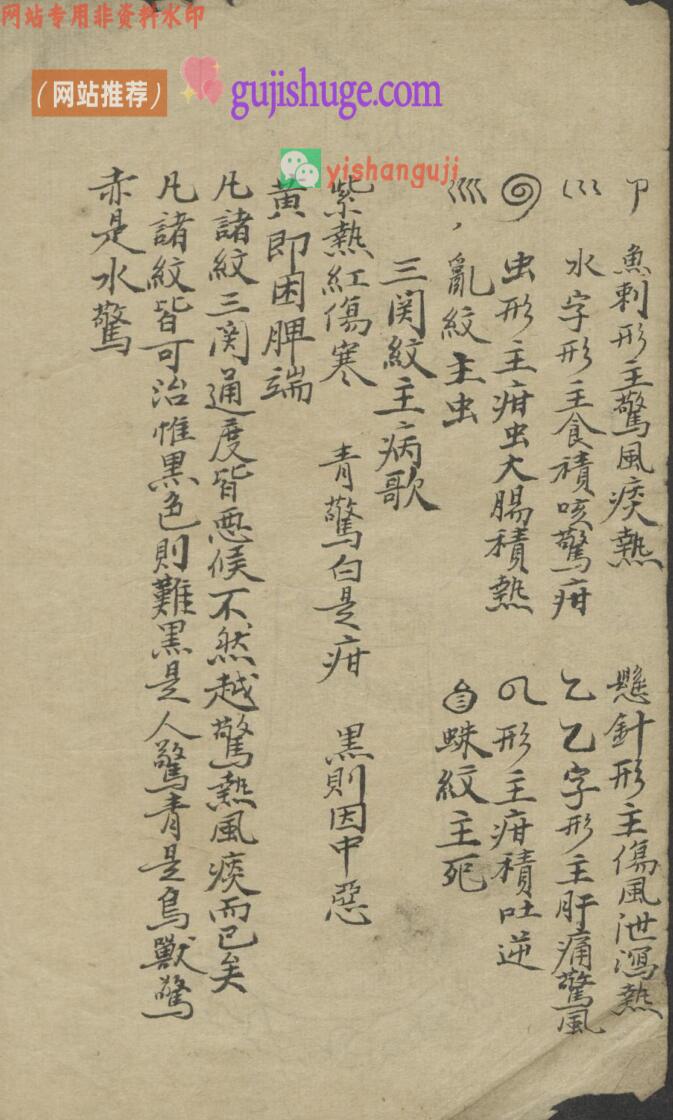 网站专用非资料水印
（网站推荐）
gujishuge.com
yishanguji
魚刺形主驚風痰熱 懸針形主傷風泄瀉熱
水字形主食積咳驚疳 乙乙字形主肝痛驚風
虫形主疳虫大腸積熱 形主疳積吐逆
亂紋主虫 蛛紋主死
三関紋主病歌
紫熱紅傷寒 青驚白是疳 黒則因中惡
黃即困脾端
凡諸紋三関通度皆悪候不然越驚熱風痰而已矣
凡諸紋皆可治惟黒色則難黒是人驚青是鳥獸驚
赤是水驚